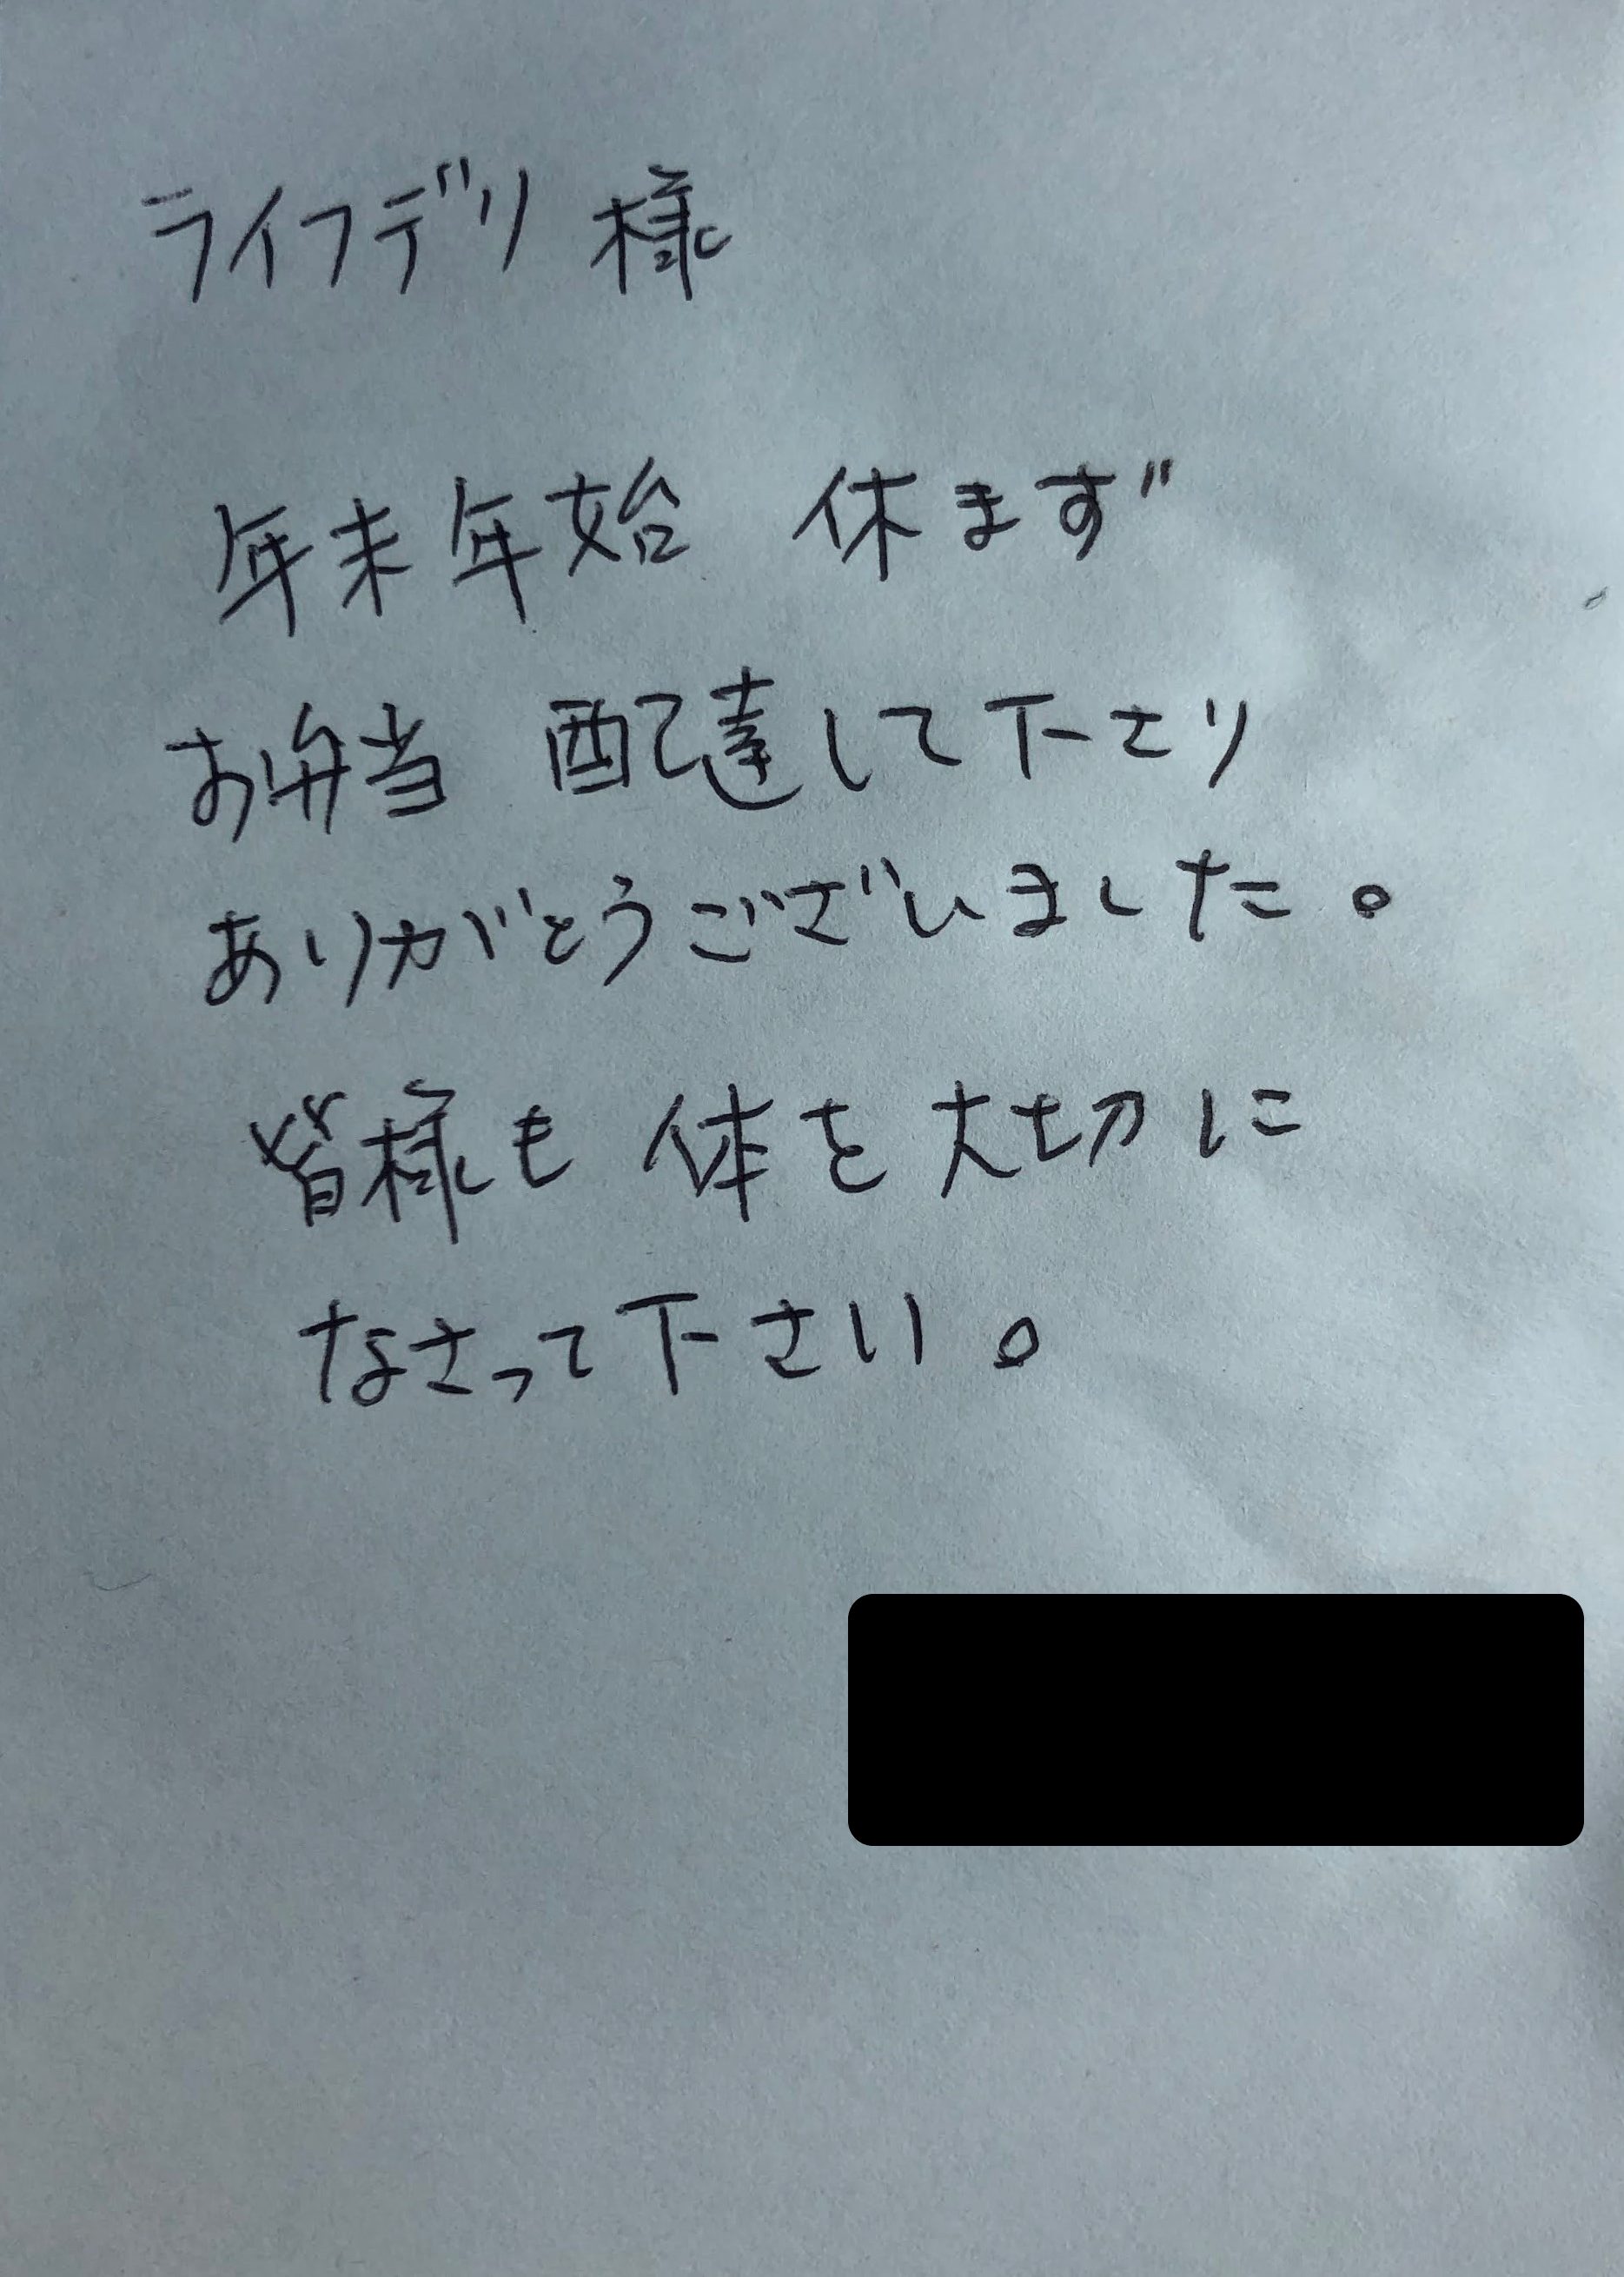 ライフデリ 様
年末年始 休まず
お弁当 配達して下さり
ありがとうございました。
皆様も 体を大切に
なさって下さい。